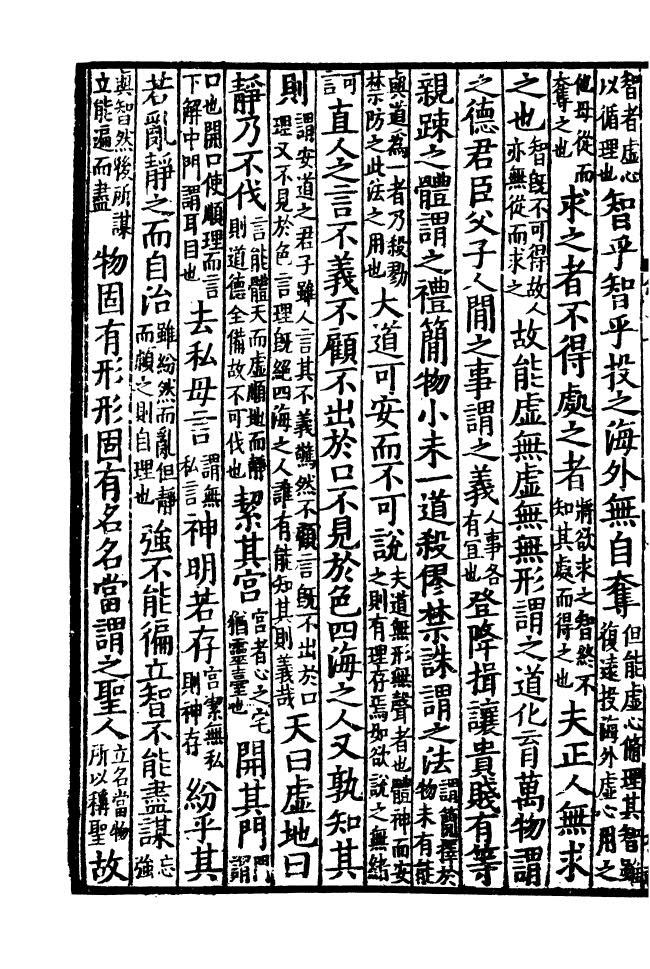 智者虛心以循理也智乎智乎投之海外無自奪但能虛心循理其智雖復遠投海外虛心用之
他毋從而奪之也求之者不得處之者將欲求之智終不知其處而得之也夫正人無求
之也智旣不可得故人亦無從而求之故能虛無虛無無形謂之道化育萬物謂
之德君臣父子人間之事謂之義人事各有宜也登降揖讓貴賤有等
親踈之體謂之禮簡物小未一道殺僇禁誅謂之法謂簡擇於物未有能
與道爲一者乃殺戮禁防之此法之用也大道可安而不可說夫道無形無聲者也體神而安之則有理存焉如欲說之無緒
可言直人之言不義不顧不出於口不見於色四海之人又孰知其
則謂安道之君子雖人言其不義驚然不顧言旣不出於口理又不見於色言理旣絕四海之人誰有能知其則義哉天曰虛地曰
靜乃不伐言能體天而虛順地而靜則道德全備故不可伐也絜其宮宮者心之宅猶靈臺也開其門門謂
口也開口使順理而言下解中門謂耳目也去私毋言謂無私言神明若存宮絜無私則神存紛乎其
若亂靜之而自治雖紛然而亂但靜而順之則自理也強不能徧立智不能盡謀忘強
與智然後所謀立能遍而盡物固有形形固有名名當謂之聖人立名當物所以稱聖故